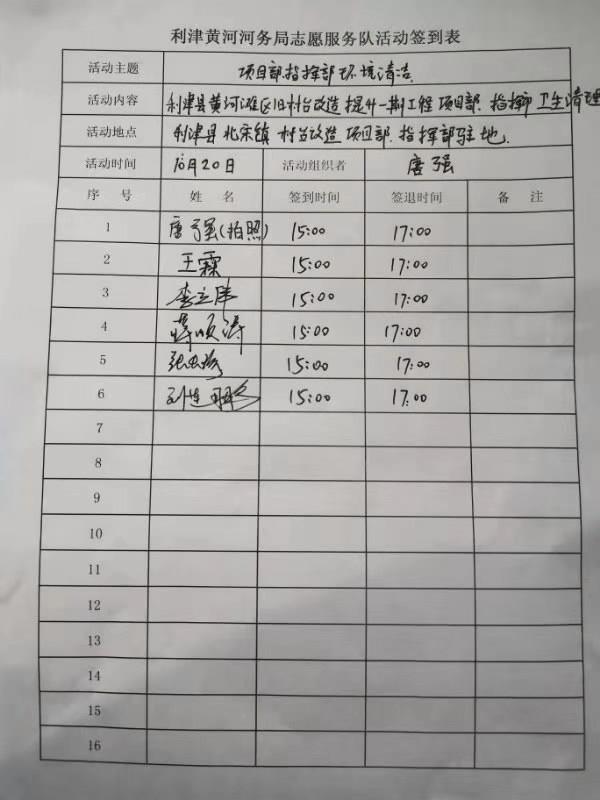 利津黄河河务局志愿服务队活动签到表
活动主题 项目部指挥部环境清洁
活动内容 利津县黄河滩区旧村台改造提升一期工程项目部.指挥部卫生清理
活动地点 利津县北宋镇村台改造项目部.指挥部驻地.
活动时间 10月20日 活动组织者 唐强
序 号 姓 名 签到时间 签退时间 备 注
1 唐强(拍照) 15:00 17:00
2 王霖 15:00 17:00
3 李立伟 15:00 17:00
4 蒋顺涛 15:00 17:00
5 15:00 17:00
6 15:00 17:00
7
8
9
10
11
12
13
14
15
16